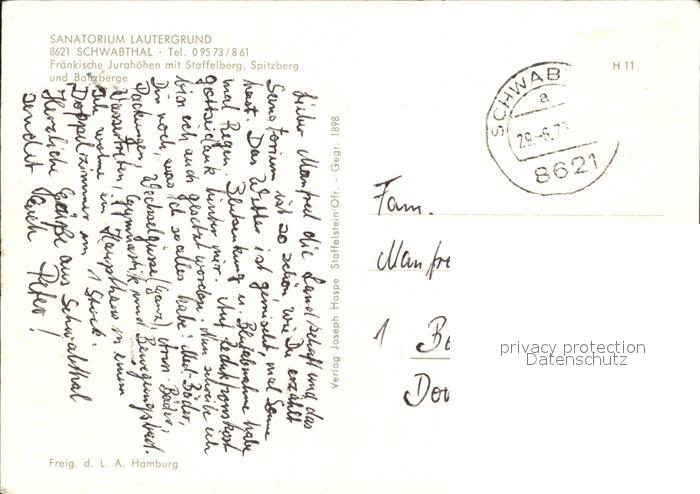 SANATORIUM LAUTERGRUND
8621 SCHWABTHAL · Tel. 0 95 73 / 8 61
Fränkische Jurahöhen mit Staffelberg, Spitzberg
und Banzberge
H 11
SCHWAB
a
29.-6.73
8621
Lieber Manfred die Landschaft und das
Sanatorium ist so schön, wie Du erzählt
hast. Das Wetter ist gemischt, mal Sonne
mal Regen. Blutsenkung u. Blutabnahme habe
gottseidank hinter mir. Auf Reduktionskost
bin ich auch gesetzt worden. Nun schreibe ich
Dir noch, was ich so alles habe: Bäder,
Packungen, Wechselgüsse (ganz), Bäder,
Wassertreten, Gymnastik und Bewegungsbad.
Ich wohne im Haupthaus in einem
Doppelzimmer im 1 Stock.
Herzliche Grüße aus Schwabthal
sendet Euch Peter!
Verlag Joseph Haspe, Staffelstein Ofr. - Gegr. 1898
Fam.
Manfre
1 Be
Do
privacy protection
Datenschutz
Freig. d. L. A. Hamburg